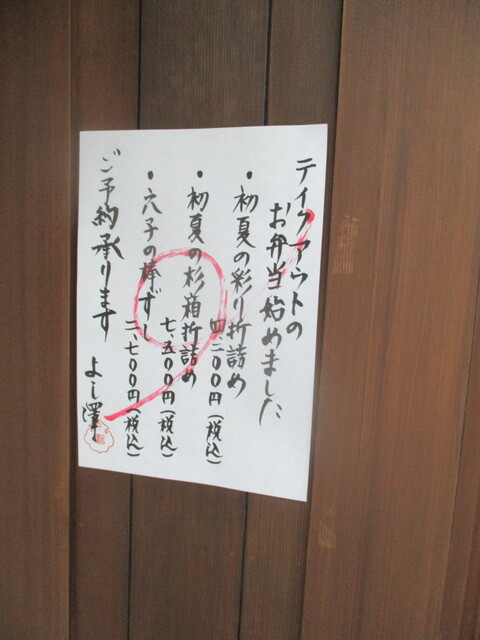 テイクアウトの
お弁当始めました
・初夏の彩り折詰め
四、二〇〇円(税込)
・初夏の杉箱折詰め
七、五〇〇円(税込)
・穴子の棒ずし
二、七〇〇円(税込)
ご予約承ります
よし澤